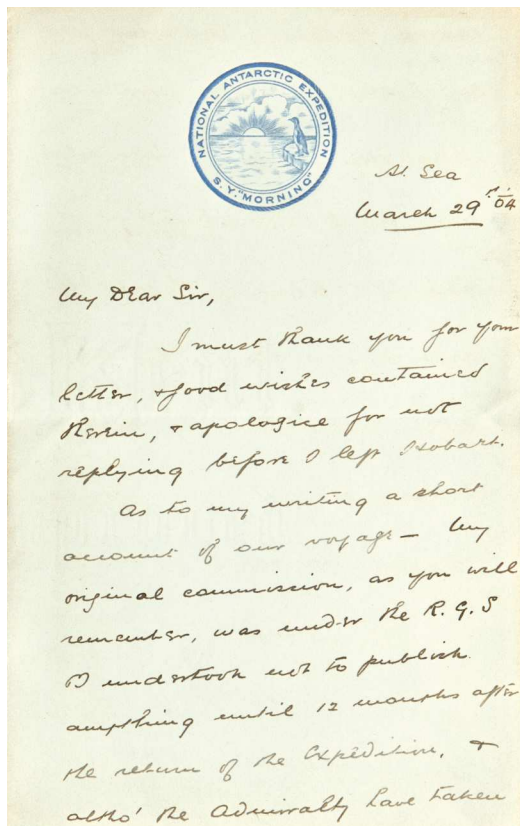 NATIONAL ANTARCTIC EXPEDITION
S.Y. "MORNING"
At Sea
March 29th. 04
My Dear Sir,
I must thank you for your
letter, & good wishes contained
therein, & apologise for not
replying before I left Hobart.
As to my writing a short
account of our voyage – My
original commission, as you will
remember, was under the R.G.S
& I undertook not to publish
anything until 12 months after
the return of the Expedition, &
altho' the Admiralty have taken